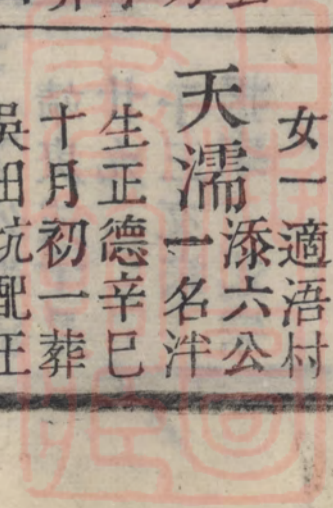 女一適浯村
天濡添六公
一名泮
生正德辛巳
十月初一葬
吳田坑配汪